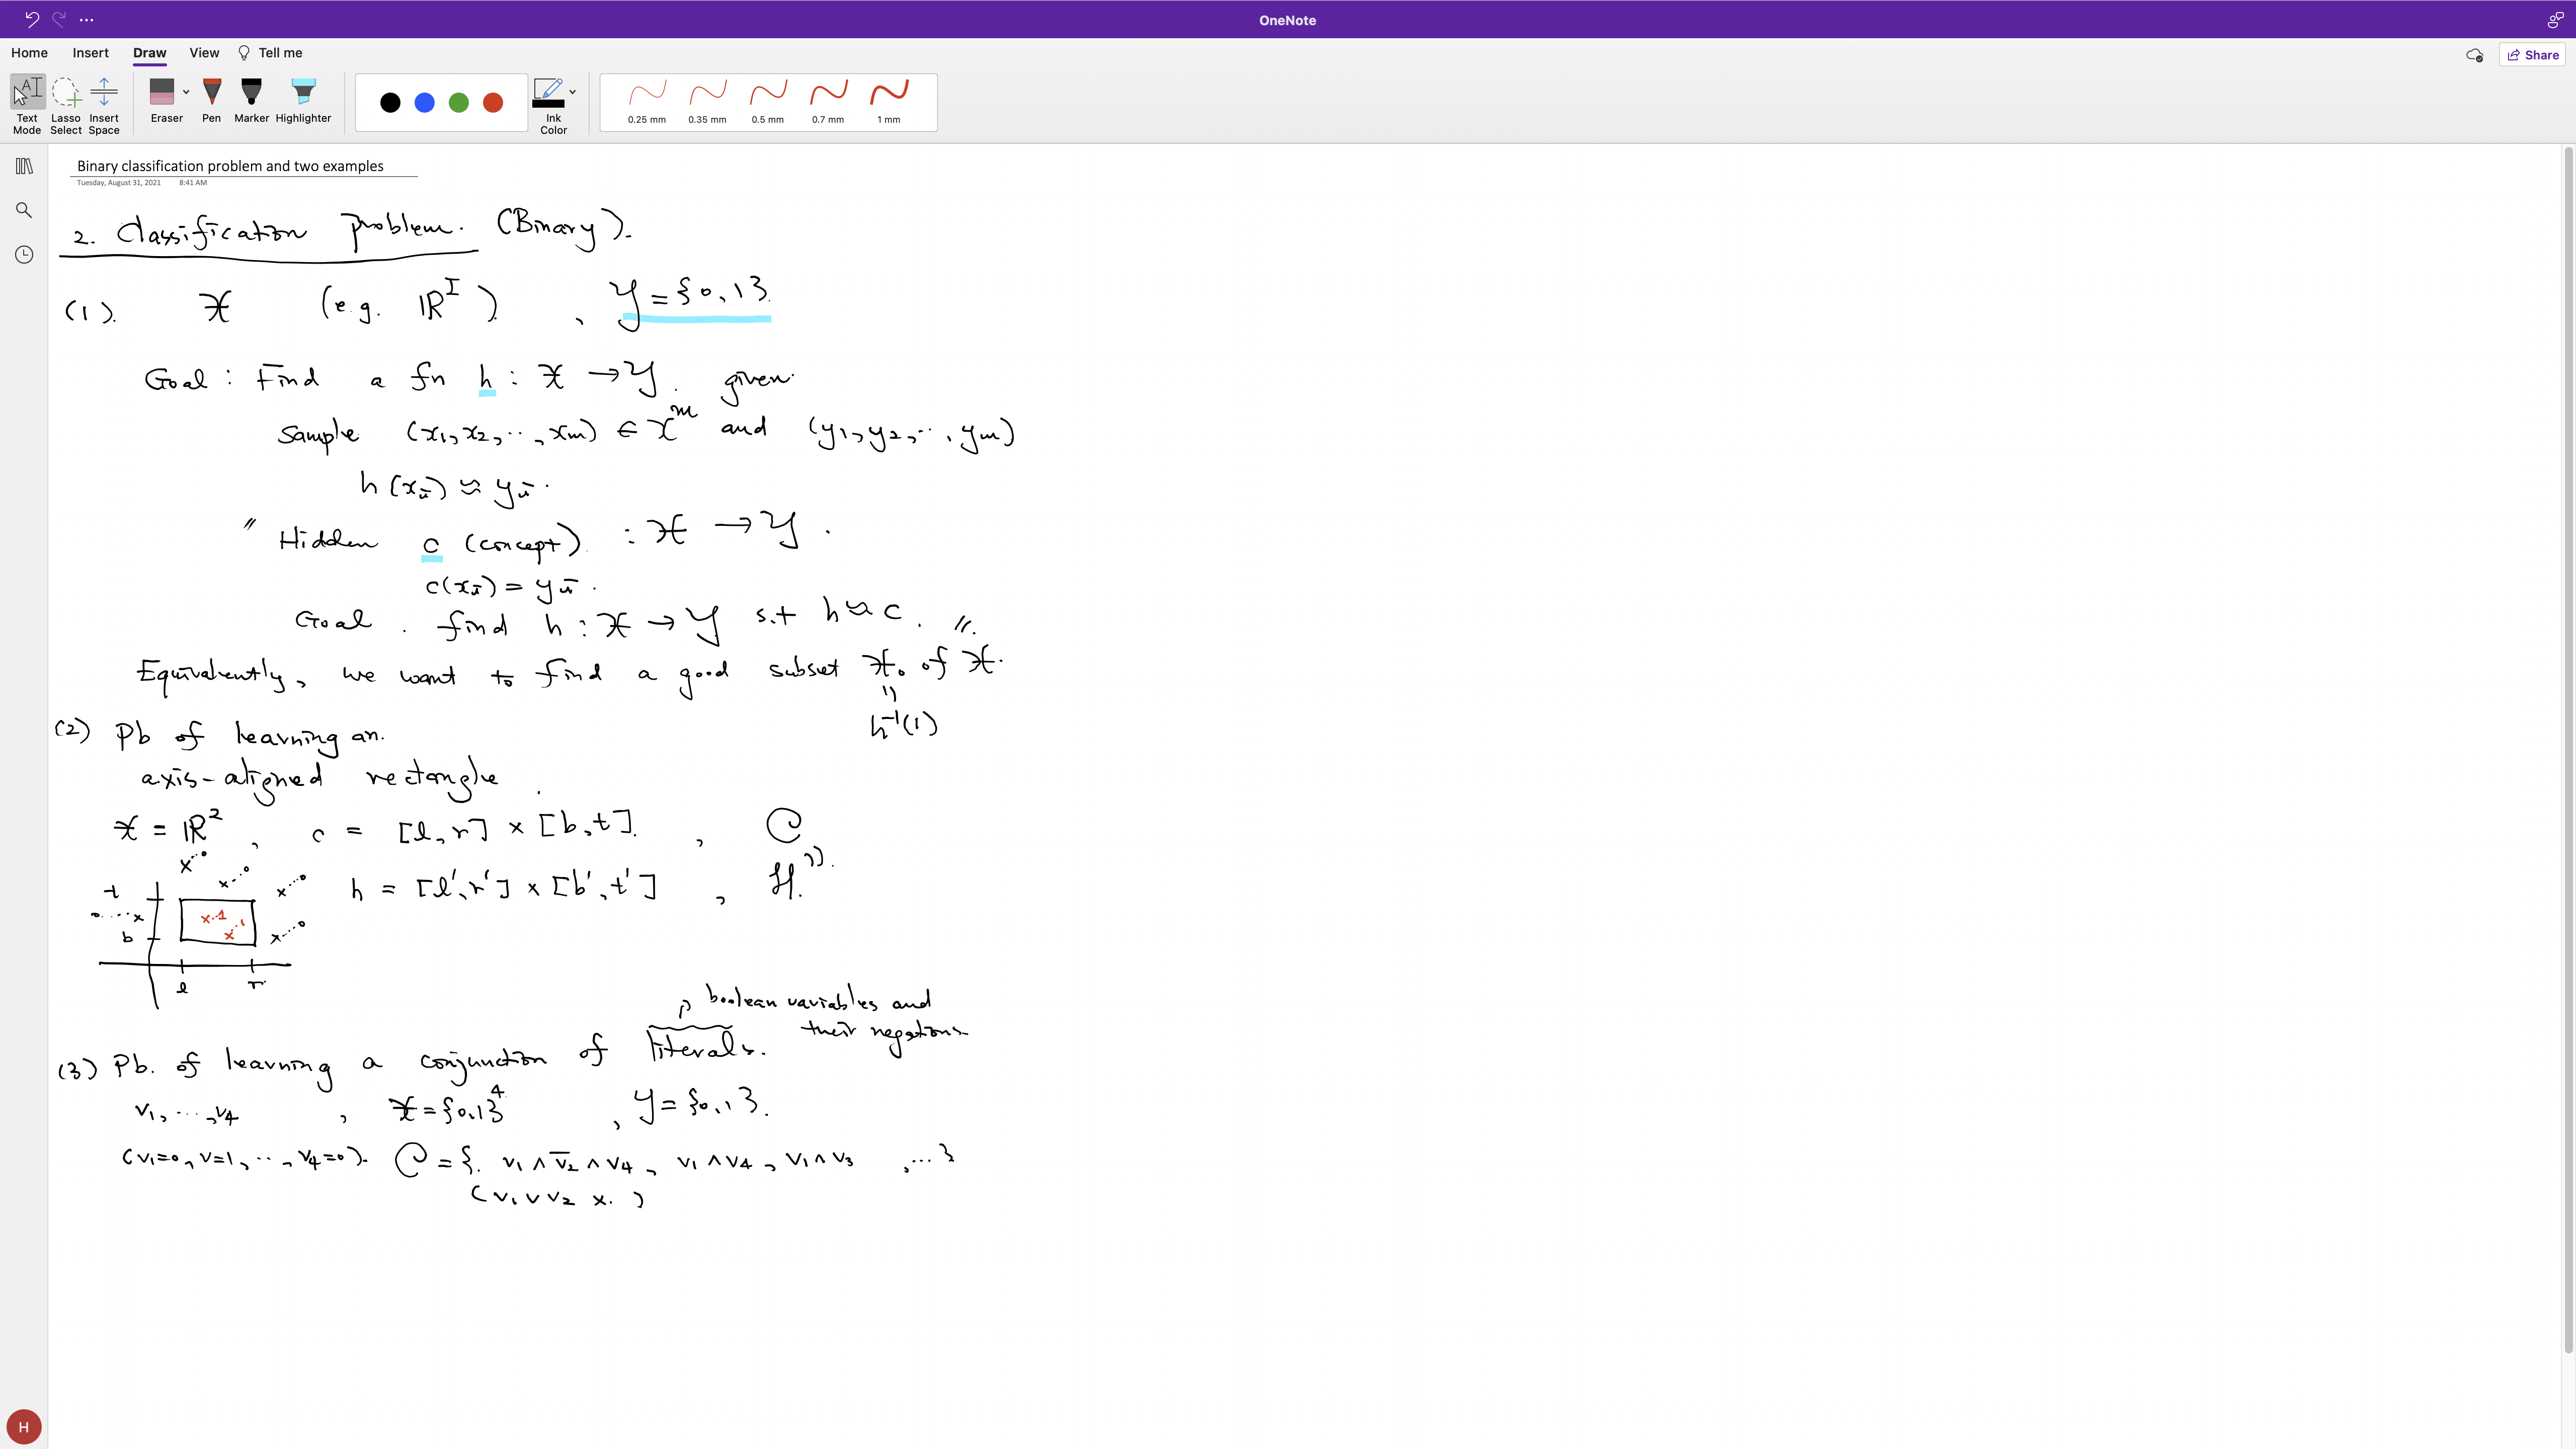 OneNote
Home Insert Draw View Tell me
Share
Text Mode
Lasso Select
Insert Space
Eraser
Pen
Marker
Highlighter
Ink Color
0.25 mm 0.35 mm 0.5 mm 0.7 mm 1 mm
Binary classification problem and two examples
Tuesday, August 31, 2021 8:41 AM
2. Classification problem. (Binary).
(1). X (e.g. ℝ^I), Y = {0,1}.
Goal : Find a fn h : X → Y. given
Sample (x1, x2, ..., xm) ∈ X^m and (y1, y2, ..., ym)
h(xi) ≈ yi.
" Hidden c (concept) : X → Y.
c(xi) = yi.
Goal. find h : X → Y s.t h ≈ c. "
Equivalently, we want to find a good subset X0 of X.
=
h^-1(1)
(2) Pb of learning an
axis-aligned rectangle.
X = ℝ^2, c = [l, r] × [b, t], C
=
h = [l', r'] × [b', t'], H.
x...0
x...0
x...0
t
0....x
x..1
x...1
x...0
b
l r
boolean variables and
their negations
(3) Pb. of learning a conjunction of literals.
v1, ..., v4, X = {0,1}^4, Y = {0,1}.
(v1=0, v=1, ..., v4=0). C = {. v1 ∧ v̄2 ∧ v4, v1 ∧ v4, v1 ∧ v3, ...}
(v1 ∨ v2 x.)
H